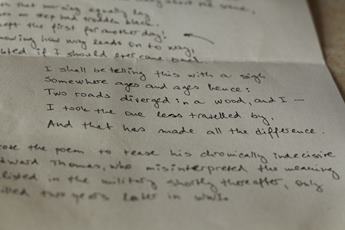 that morning equally lay
no step had trodden black.
kept the first for another day!
knowing how way leads on to way,
if I should ever come back.
I shall be telling this with a sigh
Somewhere ages and ages hence:
Two roads diverged in a wood, and I —
I took the one less travelled by.
And that has made all the difference.
the poem to tease his chronically indecisive
Edward Thomas, who misinterpreted the meaning
in the military shortly thereafter, only
two years later in